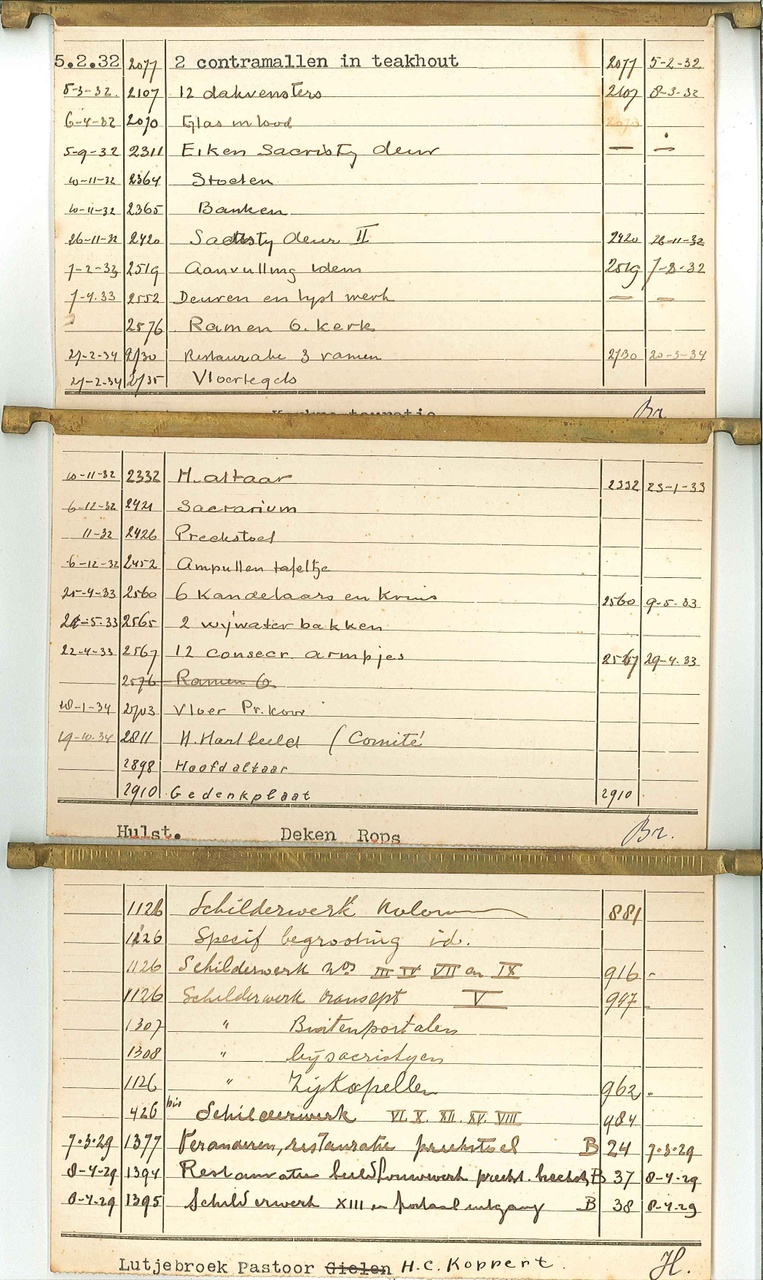 5.2.32 2077 2 contramallen in teakhout 2077 5-2-32
8-3-32. 2107 12 dakvensters 2107 8-3-32
6-4-32 2070 Glas in lood 2070
5-9-32 2311 Eiken Sacristy deur — —
10-11-32 2364 Stoelen
10-11-32 2365 Banken
26-11-32 2420 Sacristy deur II 2420 26-11-32
7-2-33 2519 Aanvulling idem 2519 7-2-32
7-4.33 2552 Deuren en lyst werk — —
2576 Ramen O. kerk
27-2-34 2730 Restauratie 3 ramen 2730 20-3-34
27-2-34 2735 Vloertegels
Br.
10-11-32 2332 H. altaar 2332 23-1-33
6-12-32 2421 Sacrarium
11-32 2426 Preekstoel
6-12-32 2452 Ampullen tafeltje
25-4-33 2560 6 Kandelaars en Kruis 2560 9-5-33
24-5-33 2565 2 wijwater bakken
22-4-33 2567 12 consecr. armpjes 2567 29-4.33
2576 Ramen O.
18-1-34 2703 Vloer Pr. koor
19-10-34 2811 H. Hart beeld (Comité
2898 Hoofdaltaar
2910 Gedenkplaat 2910
Hulst. Deken Rops Br.
1126 Schilderwerk 881
1126 Specif begrooting id.
1126 Schilderwerk nos III IV VII en IX 916 -
1126 Schilderwerk transept V 997
1307 " Buitenportalen
1308 " bij sacristyen
1126 " Zijkapellen 962.
426 bis Schilderwerk VI. X. XII. XV. VIII 984
7-3-29 1377 Veranderen, restauratie preekstoel B 24 7-3-29
8-4-29 1394 Restauratie beeldhouwwerk B 37 8-4-29
8-4-29 1395 Schilderwerk XIII en portaal uitgang B 38 8-4-29
Lutjebroek Pastoor Gielen H.C. Koppert. H.